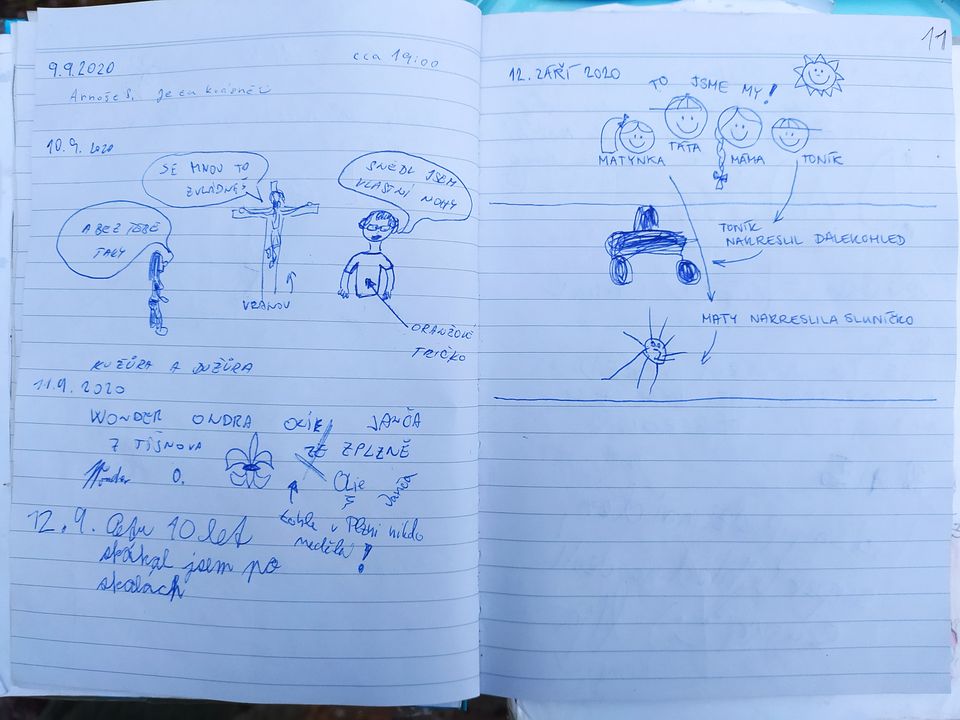 9.9.2020 cca 19:00
Arnošt S. je tu krásně
10.9. 2020
SE MNOU TO
ZVLÁDNEŠ
SNĚDL JSEM
VLASTNÍ NOHY
A BEZ TEBE
TAKY
VRANOV
ORANŽOVÉ
TRIČKO
KUŽŮRA A DUŽŮRA
11.9.2020
WONDER ONDRA OLÍK JANČA
Z TIŠNOVA ZE ZPLZNĚ
Wonder O. Olie Š Janča
tohle v Plzni nikdo
nedělá!
12.9. 10 let
skákal jsem po
skalách
11
12. ZÁŘÍ 2020
TO JSME MY!
MATYNKA TÁTA MÁMA TONÍK
TONÍK
NAKRESLIL DALEKOHLED
MATY NAKRESLILA SLUNÍČKO